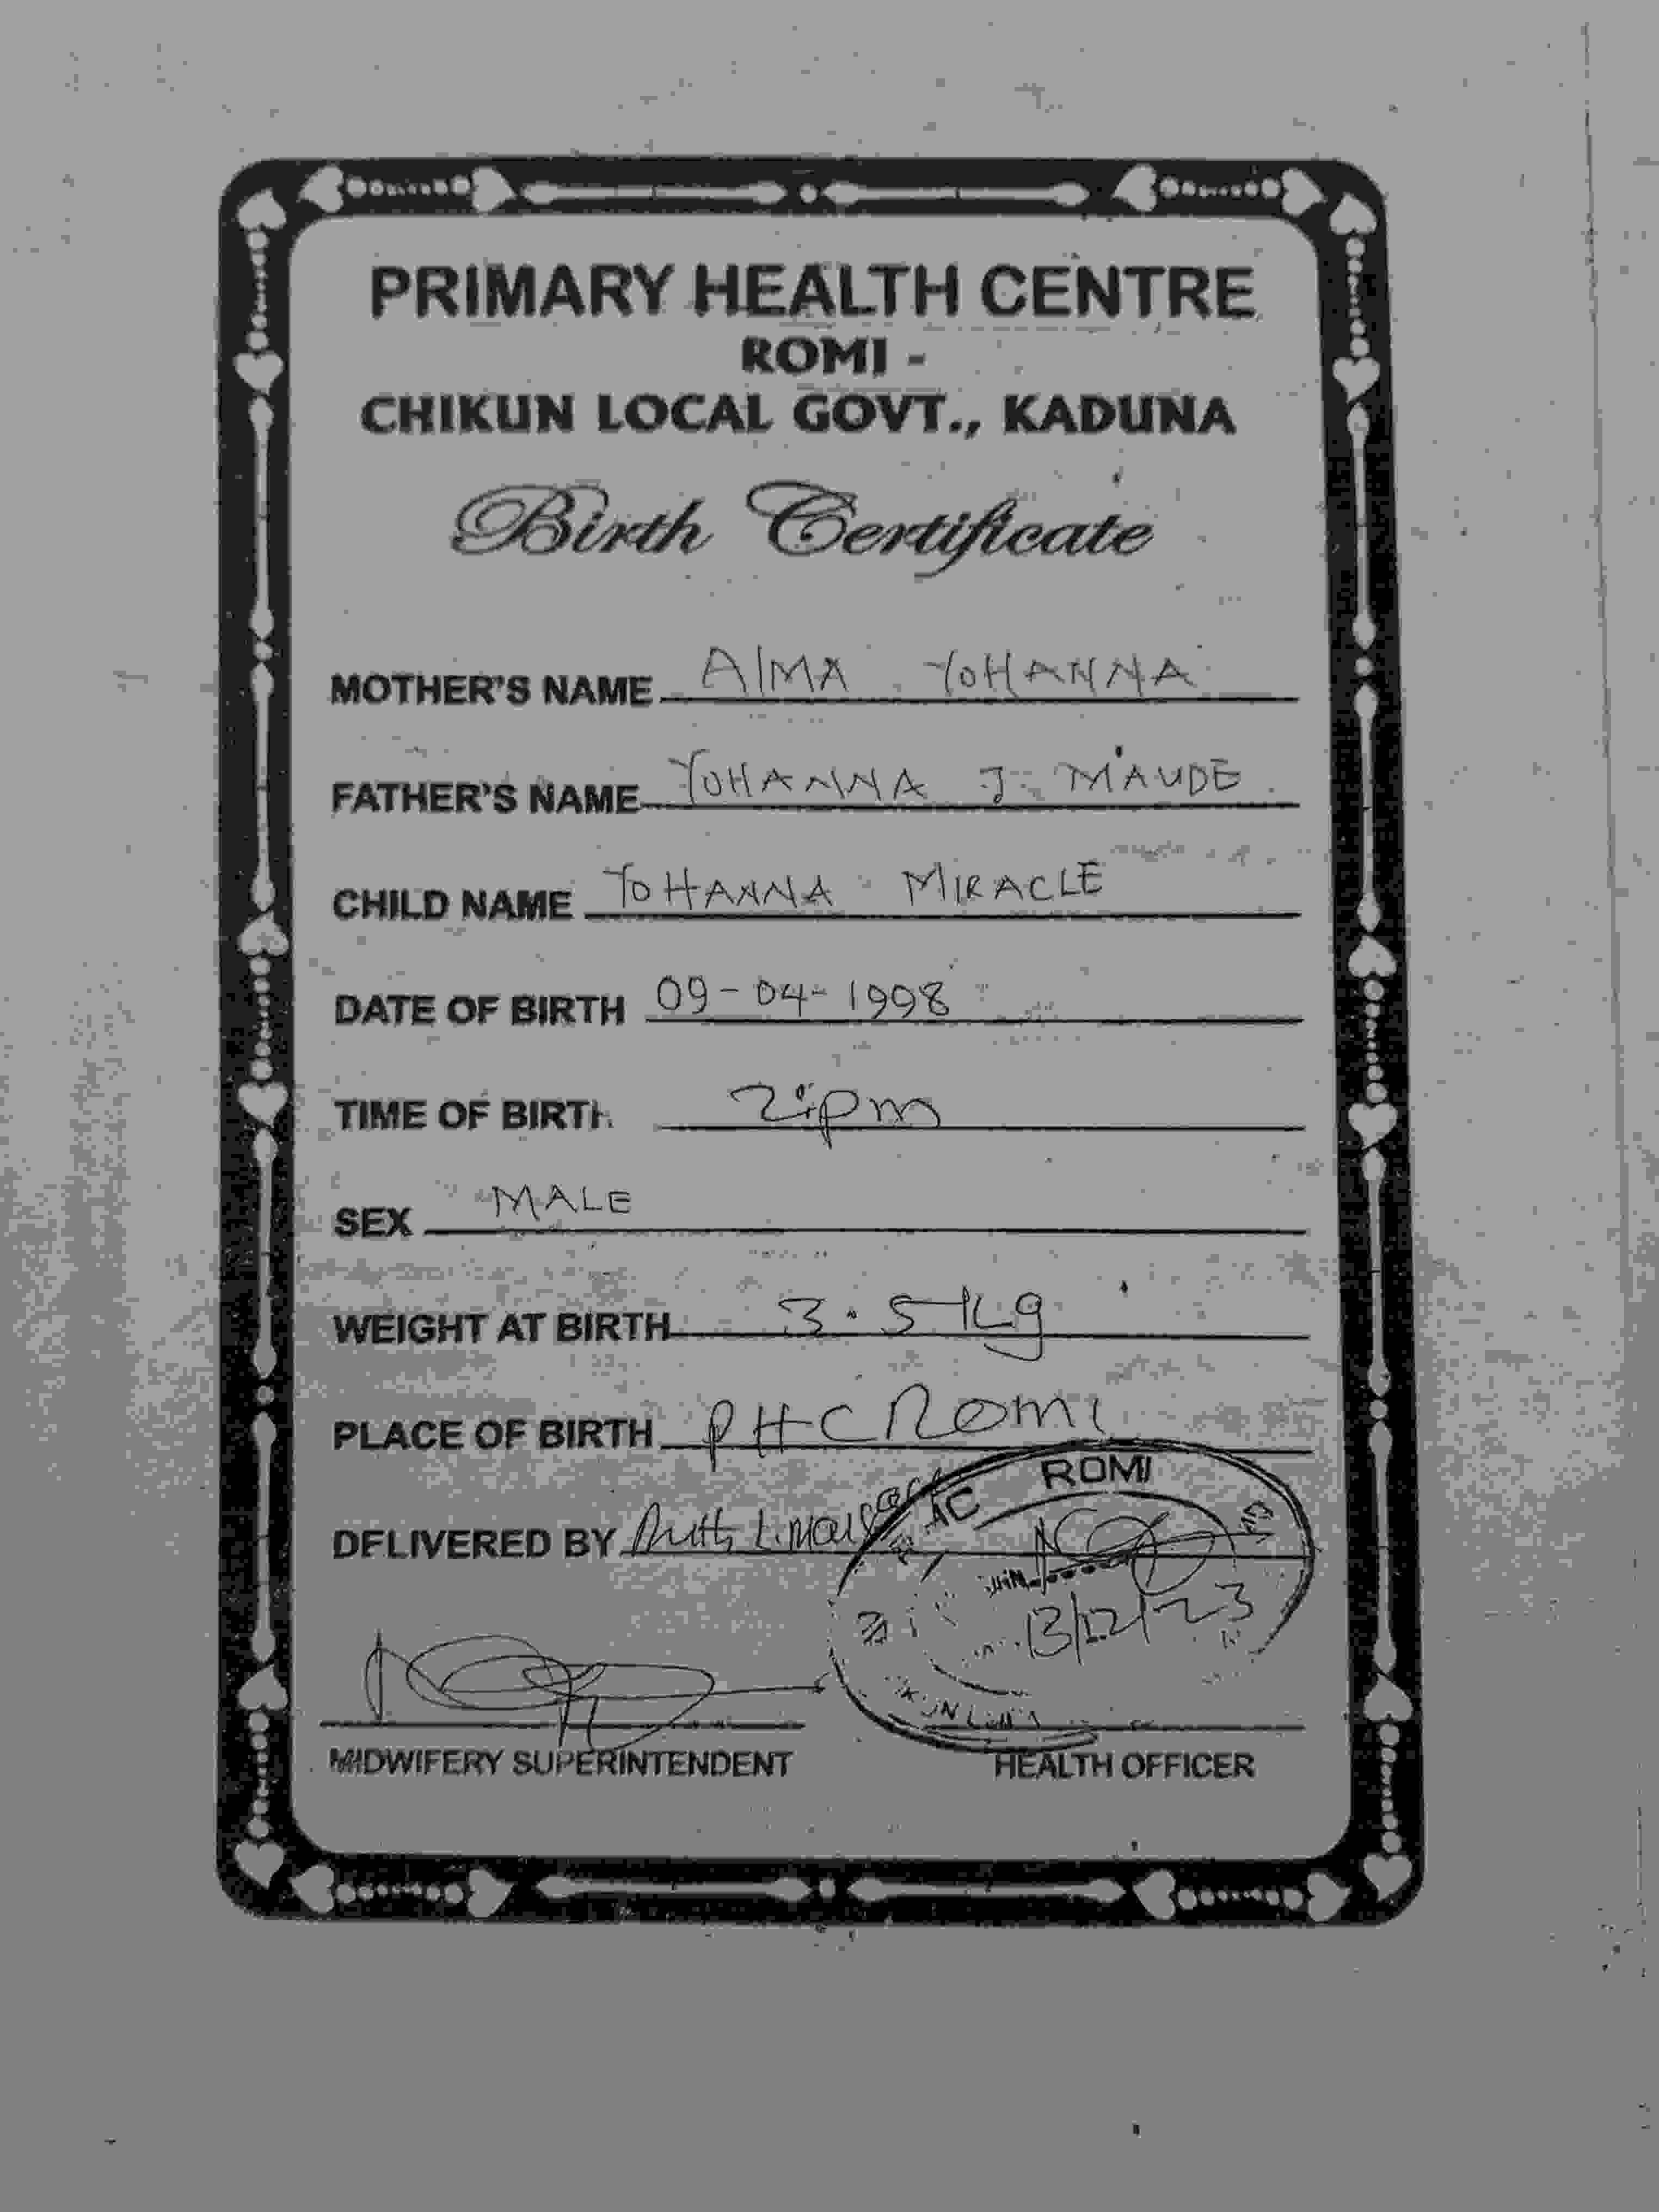 PRIMARY HEALTH CENTRE
ROMI -
CHIKUN LOCAL GOVT., KADUNA
Birth Certificate
MOTHER'S NAME AlMA YOHANNA
FATHER'S NAME YOHANNA J. MAUDE
CHILD NAME YOHANNA MIRACLE
DATE OF BIRTH 09-04-1998
TIME OF BIRTH 2:pm
SEX MALE
WEIGHT AT BIRTH 3.5kg
PLACE OF BIRTH PHC Romi
ROMI
DELIVERED BY Ruth
13/12/23
MIDWIFERY SUPERINTENDENT HEALTH OFFICER